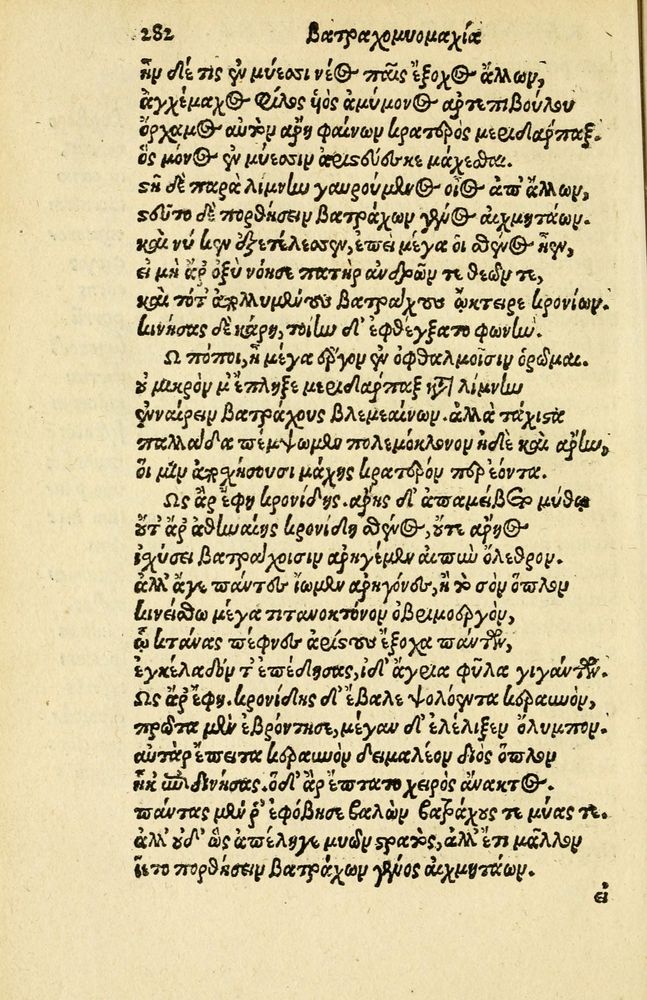 282 Βατραχομυομαχία
ἦν δέ τις ἐν μύεσσι νέος παῖς ἔξοχος ἄλλων,
ἀγχέμαχος φίλος υἱὸς ἀμύμονος ἀρτεπιβούλου
ὄρχαμος αὐτὸν ἄρην φαίνων κρατερὸς μεριδάρπαξ.
ὃς μόνος ἐν μύεσσιν ἀρίστευσκε μάχεσθαι.
στῆ δὲ παρὰ λίμνην γαυρούμενος οἶος ἀπ' ἄλλων,
στεῦτο δὲ πορθήσειν βατράχων γένος αἰχμητάων.
καὶ νύ κεν ἐξετέλεσσεν, ἐπεὶ μέγα οἱ σθένος ἦεν,
εἰ μὴ ἄρ' ὀξὺ νόησε πατὴρ ἀνδρῶν τε θεῶν τε,
καὶ τότ' ἀπολλυμένους βατράχους ᾤκτειρε κρονίων.
κινήσας δὲ κάρη, τοίην δ' ἐφθέγξατο φωνήν.
Ὢ πόποι, ἦ μέγα ἔργον ἐν ὀφθαλμοῖσιν ὁρῶμαι.
οὐ μικρὸν μ' ἔπληξε μεριδάρπαξ κατὰ λίμνην
ἐναίρειν βατράχους βλεμεαίνων. ἀλλὰ τάχιστα
παλλάδα πέμψωμεν πολεμόκλονον ἠδὲ καὶ ἄρην,
οἵ μιν ἀποσχήσουσι μάχης κρατερόν περ ἐόντα.
Ὣς ἄρ' ἔφη κρονίδης. ἄρης δ' ἀπαμείβετο μύθῳ
οὔτ' ἄρ' ἀθηναίης κρονίδη σθένος, οὔτε ἄρηος
ἰσχύσει βατράχοισιν ἀρηγέμεν αἰπὺν ὄλεθρον.
ἀλλ' ἄγε πάντες ἴωμεν ἀρηγόνες, ἢ τὸ σὸν ὅπλον
κινείσθω μέγα τιτανοκτόνον ὀβριμοεργόν,
ᾧ κτάνας πέφνες ἀρίστους ἔξοχα πάντων,
ἐγκέλαδόν τ' ἐπέδησας, ἰδ' ἄγρια φῦλα γιγάντων.
Ὣς ἄρ' ἔφη. κρονίδης δ' ἔβαλε ψολόεντα κεραυνόν,
πρῶτα μὲν ἐβρόντησε, μέγαν δ' ἐλέλιξεν ὄλυμπον.
αὐτὰρ ἔπειτα κεραυνὸν δειμαλέον διὸς ὅπλον
ἧκ' ἐπιδινήσας. ὁ δ' ἄρ' ἔπτατο χειρὸς ἄνακτος.
πάντας μέν ῥ' ἐφόβησε βαλὼν βατράχους τε μύας τε.
ἀλλ' οὐδ' ὣς ἀπέληγε μυῶν στρατὸς, ἀλλ' ἔτι μᾶλλον
ἵετο πορθήσειν βατράχων γένος αἰχμητάων.
εἰ